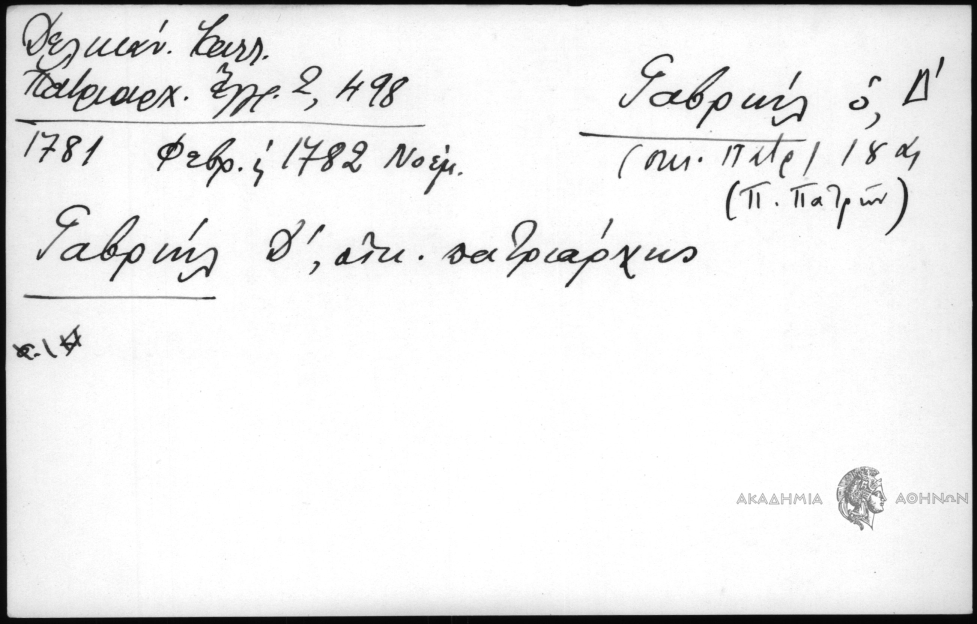 Δελικάν. Καλλ.
Πατριαρχ. Ἔγγρ. 2, 498
1781 Φεβρ. ἤ 1782 Νοέμ.
Γαβριήλ ὁ, Δ΄
(οικ. Πατρ) 18 αι
(Π. Πατρῶν)
Γαβριήλ Δ΄, οἰκ. πατριάρχης
ΑΚΑΔΗΜΙΑ ΑΘΗΝΩΝ